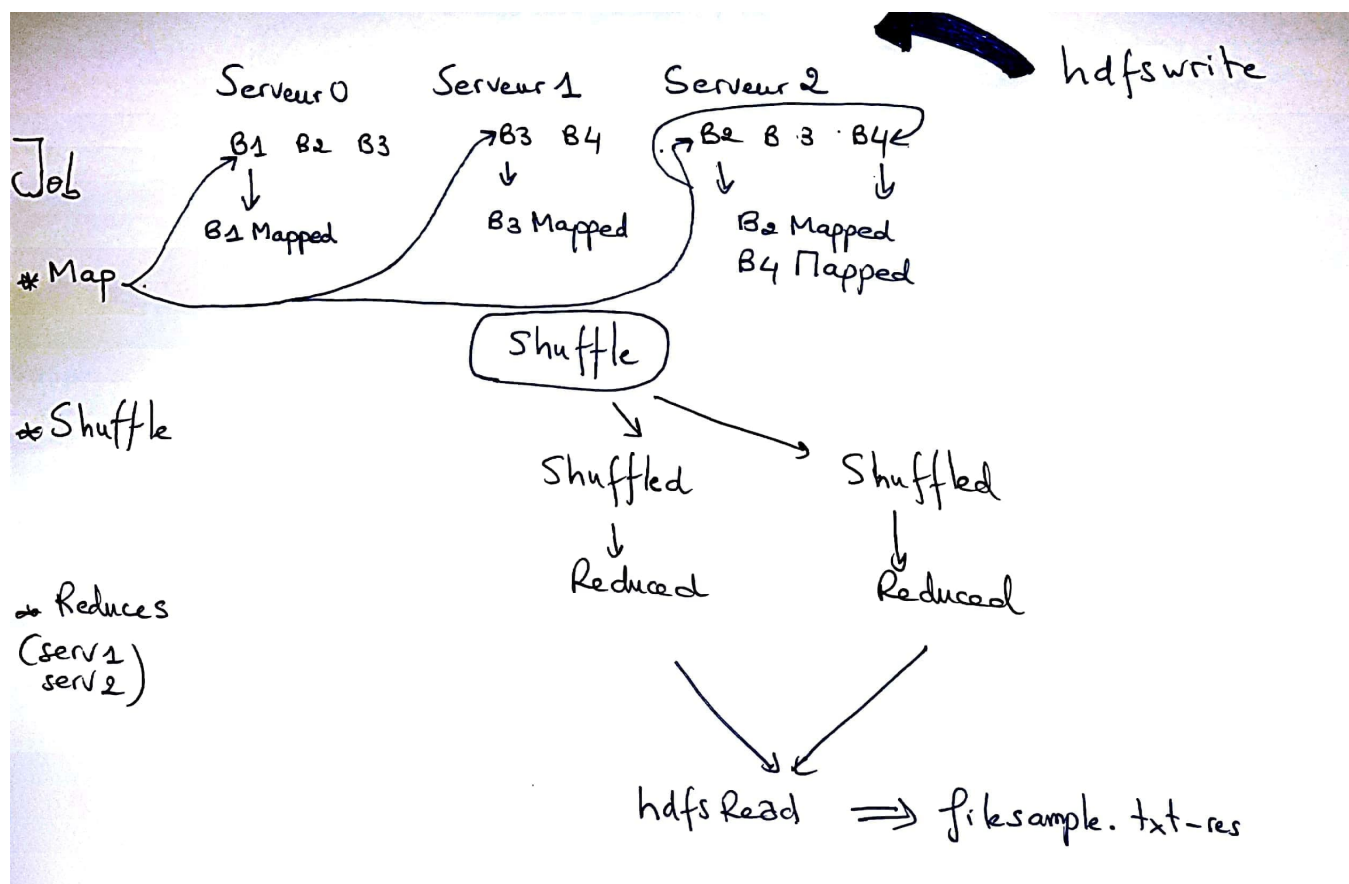 hdfswrite
Serveur 0 Serveur 1 Serveur 2
B1 B2 B3 B3 B4 B2 B3 B4
Job
B1 Mapped B3 Mapped B2 Mapped
B4 Mapped
* Map
Shuffle
* Shuffle
Shuffled Shuffled
Reduced Reduced
* Reduces
(serv1
serv2)
hdfsRead ⇒ filesample.txt-res